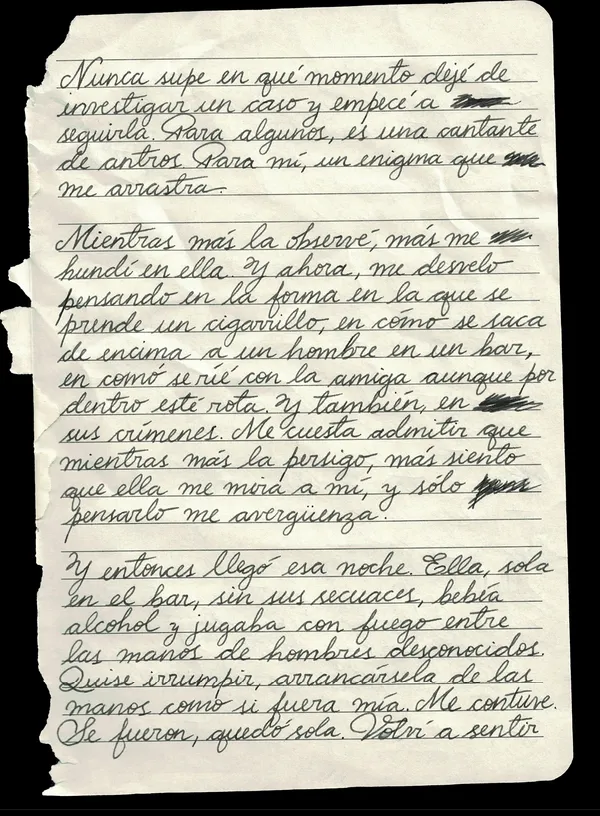 Nunca supe en qué momento dejé de
investigar un caso y empecé a
seguirla. Para algunos, es una cantante
de antros. Para mí, un enigma que
me arrastra.
Mientras más la observé, más me
hundí en ella. Y ahora, me desvelo
pensando en la forma en la que se
prende un cigarrillo, en cómo se saca
de encima a un hombre en un bar,
en comó se ríe con la amiga aunque por
dentro esté rota. Y también, en
sus crímenes. Me cuesta admitir que
mientras más la persigo, más siento
que ella me mira a mí, y sólo
pensarlo me avergüenza.
Y entonces llegó esa noche. Ella, sola
en el bar, sin sus secuaces, bebía
alcohol y jugaba con fuego entre
las manos de hombres desconocidos.
Quise irrumpir, arrancársela de las
manos como si fuera mía. Me contuve.
Se fueron, quedó sola. Volví a sentir